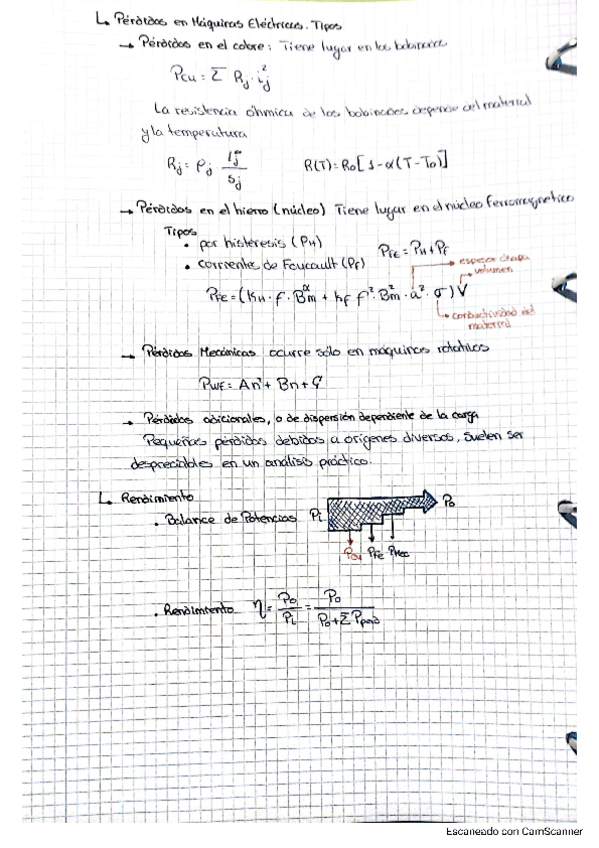 L Pérdidas en Máquinas Eléctricas. Tipos
→ Pérdidas en el cobre: Tiene lugar en las bobinas
Pcu = Σ Rj · ij²
La resistencia óhmica de los bobinados depende del material
y la temperatura
Rj = ρj lj/sj    R(T) = R0[1-α(T-T0)]
→ Pérdidas en el hierro (núcleo) Tiene lugar en el núcleo ferromagnético
Tipos
• por histéresis (PH)    PFE = PH + Pf
• corrientes de Foucault (Pf)
espesor chapa
volumen
PFE = (KH · f · Bm^α + kf f² · Bm² · a² · σ) V
conductividad del
material
→ Pérdidas Mecánicas ocurre sólo en máquinas rotativas
PWF = An² + Bn + C
→ Pérdidas adicionales, o de dispersión dependiente de la carga
Pequeñas pérdidas debidas a orígenes diversos, suelen ser
despreciables en un análisis práctico.
L Rendimiento
• Balance de Potencias Pi    Po
Pcu PFE PMec
• Rendimiento η = Po/Pi = Po/(Po + Σ Pperd)
Escaneado con CamScanner